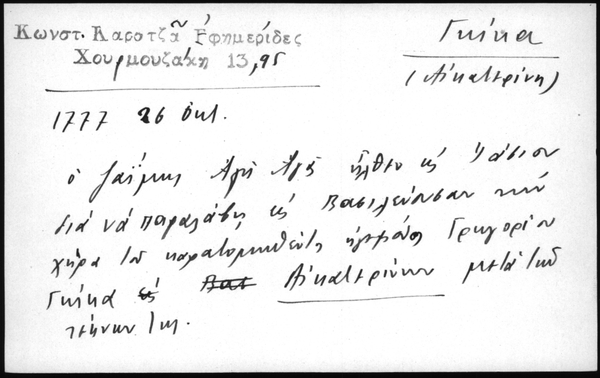 Κωνστ. Καρατζᾶ Ἐφημερίδες
Χουρμουζάκη 13, 95
Γκίκα
(Αἰκατερίνη)
1777 26 Ὀκτ.
ὁ Ἀλῆ Ἀγᾶ ἦλθεν εἰς Ἰάσιον
διά νά παραλάβῃ εἰς Βασιλεύουσαν τήν
χήρα τοῦ καρατομηθέντος ἡγεμόνος Γρηγορίου
Γκίκα εἰς Βασ Αἰκατερίνην μετά τῶν
τέκνων της.